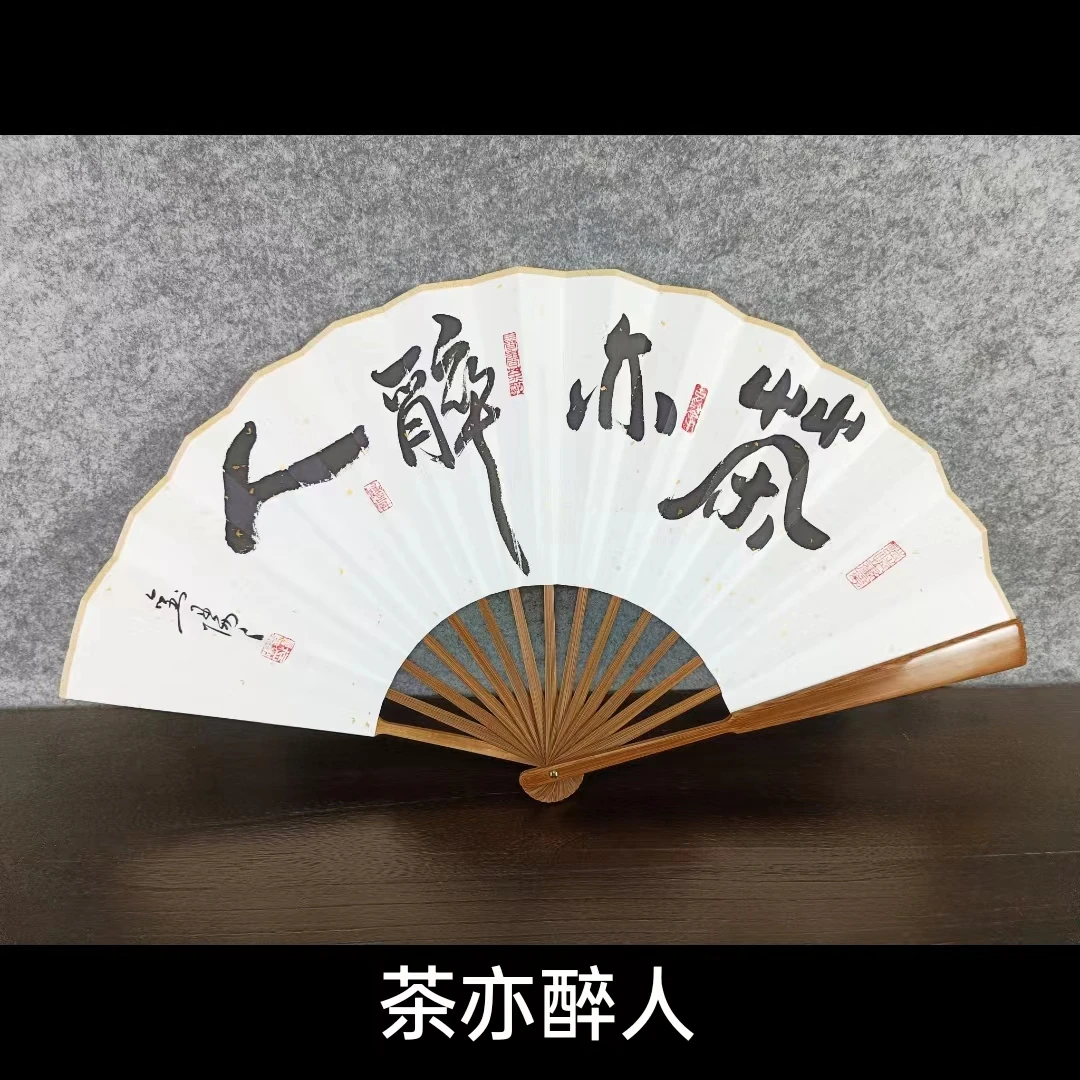 茶亦醉人
茶亦醉人